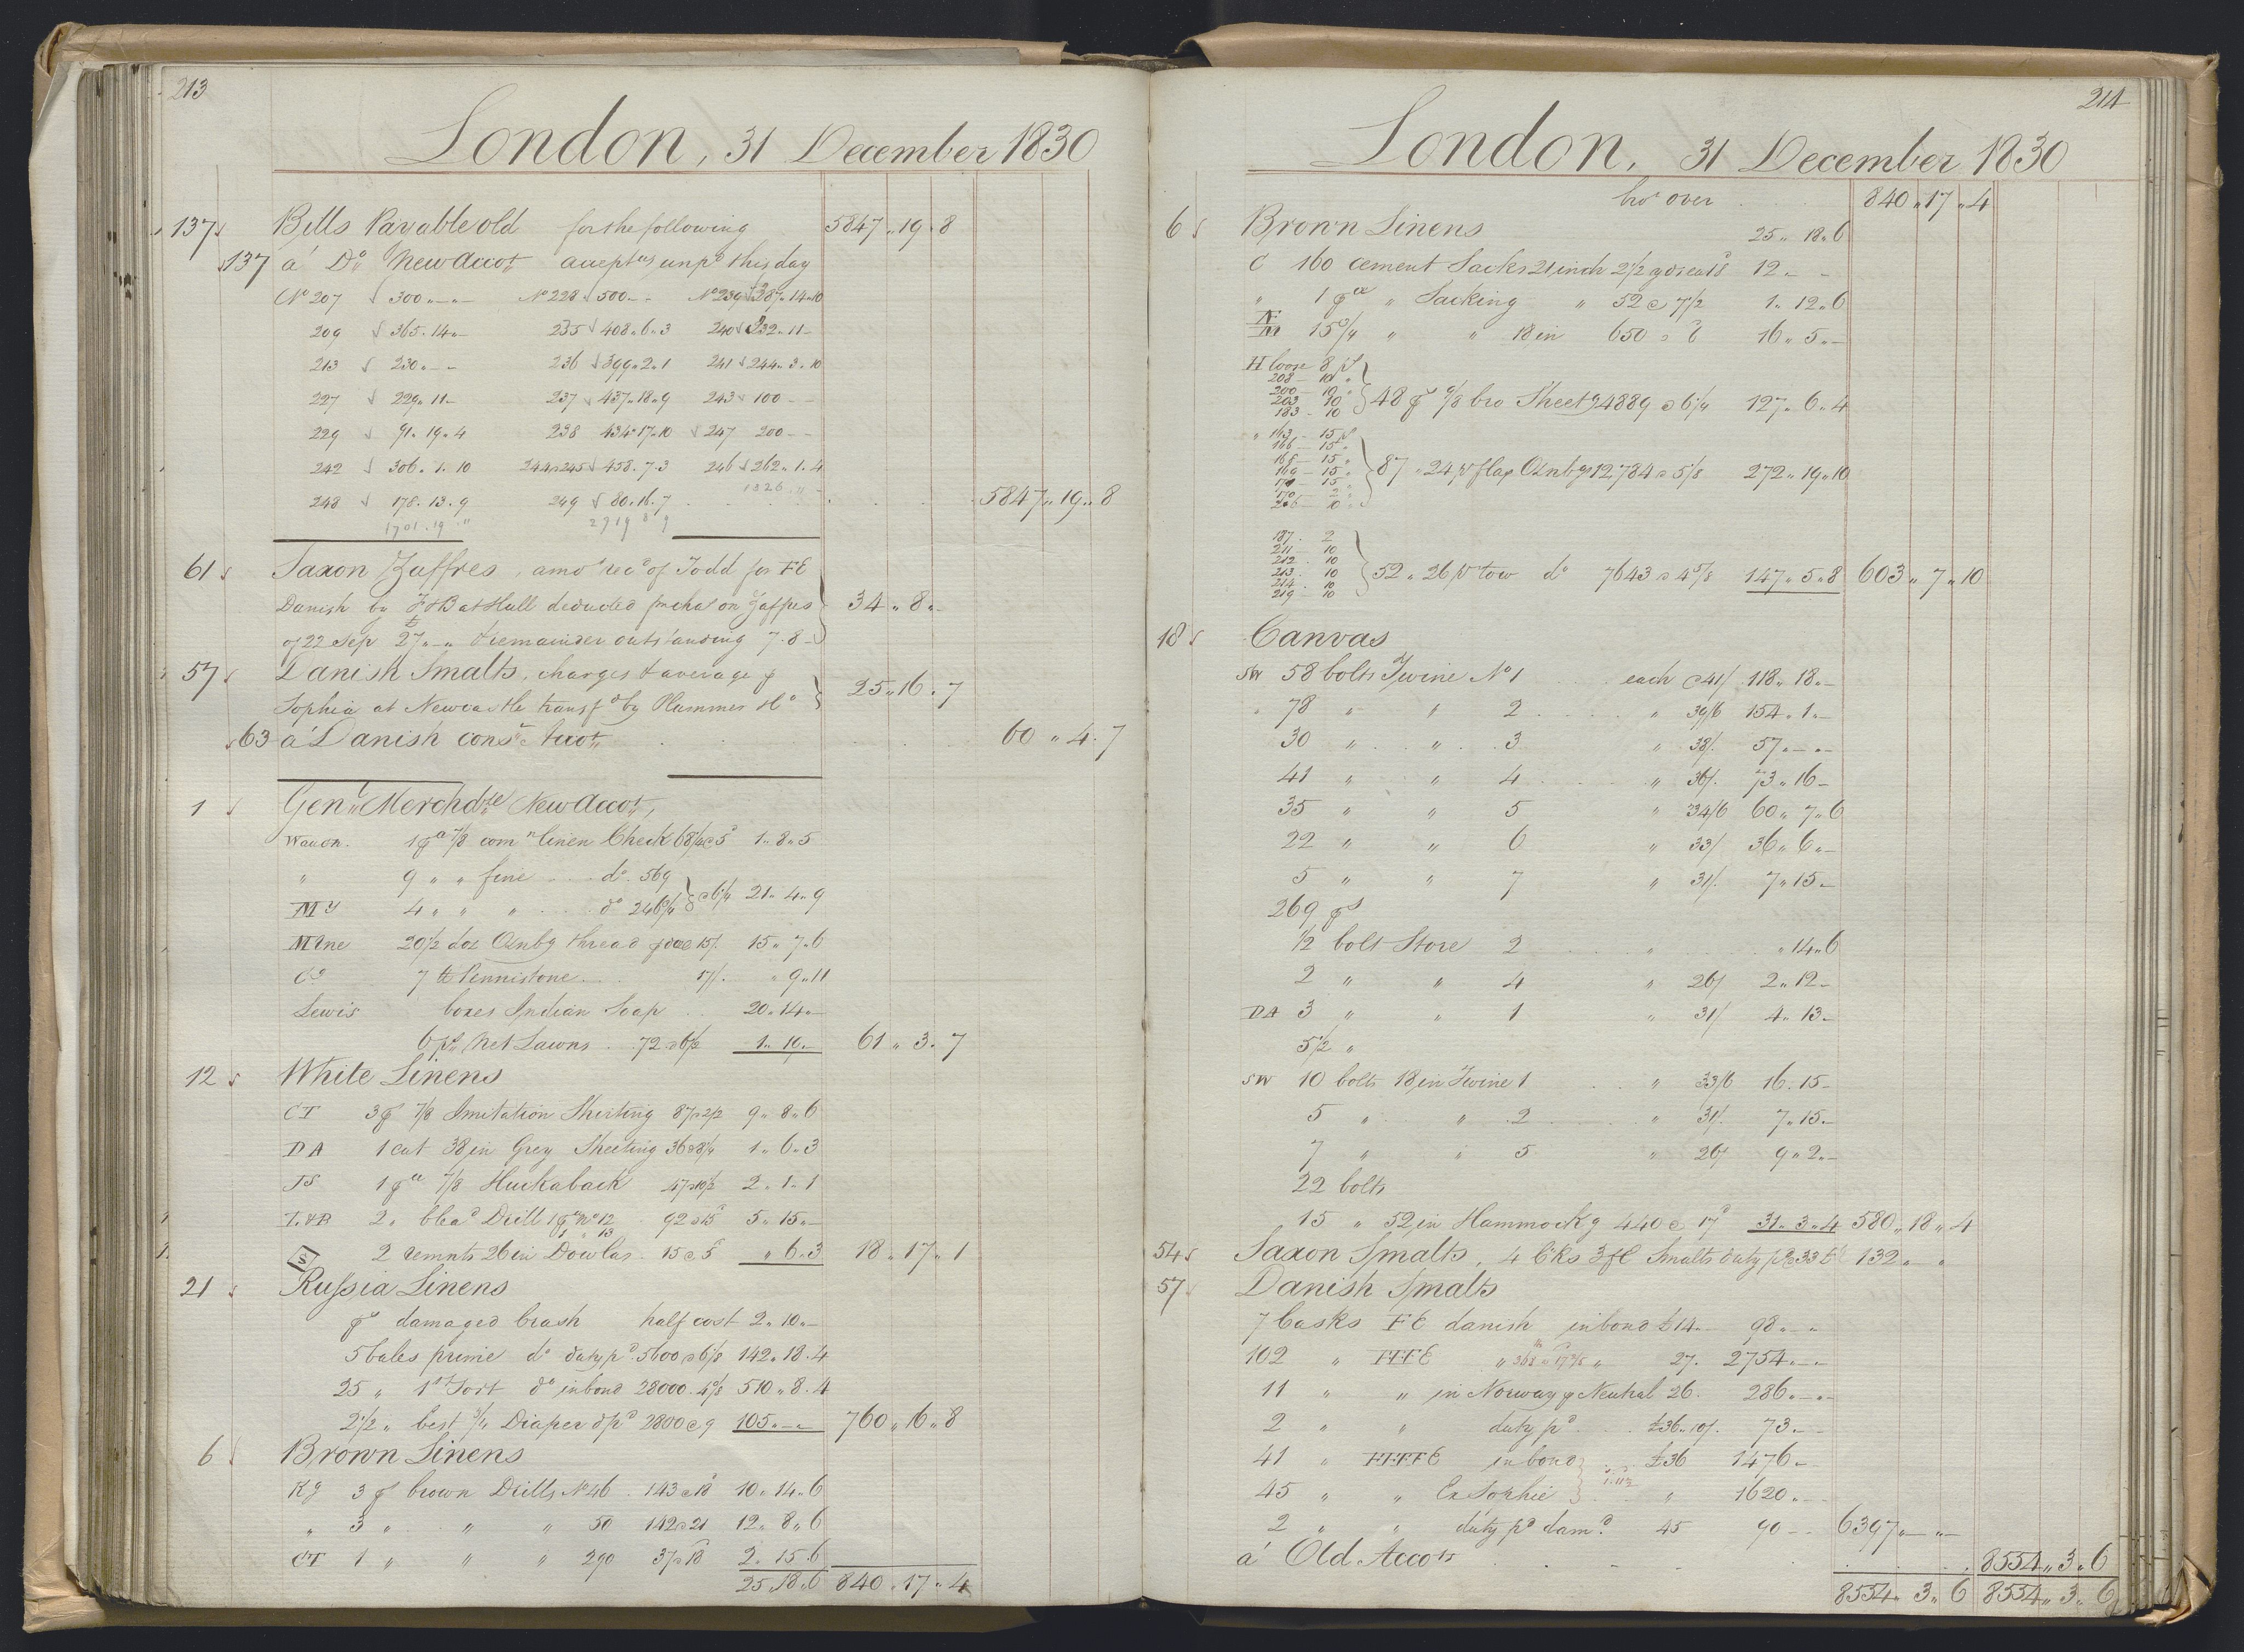 213
London, 31 December 1830
137 Bills Payable old for the following 5847 " 19 " 8
137 a' Do New Accot accepts unpd this day
No 207 300 " - " - No 228 500 - - No 239 287 " 14 " 10
209 365 . 14 " - 235 408 " 6 " 3 240 232 " 11 -
213 230 " - - 236 399 " 2 " 1 241 244 " 3 " 10
227 229 " 11 - 237 437 " 18 " 9 243 100 - -
229 91 " 19 " 4 238 434 " 17 " 10 247 200 - -
242 306 " 1 . 10 244 & 245 458 . 7 . 3 246 262 " 1 . 4
1326 " -
248 178 . 13 . 9 249 80 . 16 . 7 5847 " 19 " 8
1701 . 19 . " 2719 8 9
61 Saxon Zaffres, amot recd of Todd for FE
Danish by at Hull deducted on Zaffres 34 " 8 " -
of 22 Sep 27 " - " & remainder outstanding 7 . 8 -
57 Danish Smalts, charges & average
Sophia at Newcastle transfd by Plummer & Co 25 " 16 . 7
63 a' Danish consr Accot 60 " 4 . 7
1 Genl Merchdse New Accot,
Wauch . 1 ps 7/8 comn linen Check 68 1/4 @ 5d 1 " 8 " 5
" 9 " " fine do . 569
MY 4 " " " do 246 3/4 @ 6 1/4 21 " 4 " 9
Mne 20 1/2 doz Oznbg thread @ 15/. 15 " 7 " 6
Co 7 lb Pennistone 17/. " 9 " 11
Lewis boxes Indian Soap 20 " 14 " -
6 ps Net Lawns . 72 @ 6/2 1 " 19 . - 61 " 3 . 7
12 White Linens
CT 3 7/8 Imitation Shirting 87 @ 2/2 9 " 8 " 6
DA 1 cut 38 in Grey Sheeting 36 @ 8 3/4 1 " 6 " 3
JS 1 ps 7/8 Huckaback 47 @ 10 1/2 2 " 1 . 1
T&B 2 " blead Drill 1 No 12 92 @ 15d 5 " 15 " -
1 " 13
S 2 remnts 26 in Dowlas 15 @ 5 " 6 . 3 18 " 17 " 1
21 Russia Linens
damaged Crash half cost 2 " 10 " -
5 bales prime do duty pd . 5600 @ 6 1/8 142 " 18 . 4
25 " 1st Sort do in bond 28000 . 4 3/8 510 " 8 . 4
2 1/2 " best 3/4 Diaper d pd 2800 @ 9 105 " - " 760 " 16 " 8
6 Brown Linens
KJ 3 brown Drills No 46 . 143 @ 18d 10 " 14 " 6
" 3 " " " 50 142 @ 21 12 " 8 " 6
CT 1 " " " 290 37 @ 18 2 " 15 . 6
25 " 18 " 6 840 " 17 " 4
214
London, 31 December 1830
bro' over 840 " 17 " 4
6 Brown Linens 25 " 18 " 6
C 160 cement Sacks 21 inch 2 1/2 yds ea 18d 12 " - -
" 1 ps " Sacking " 52 @ 7 1/2 1 " 12 " 6
N 15 3/4 " " 18 in 650 @ 6 16 " 5 " -
M
H loose 8 ps
208 - 10 "
200 - 10 "
203 - 10 48 9/8 bro Sheetg 4889 @ 6 1/4 127 " 6 " 4
183 - 10
" 163 - 15 ps
166 - 15 "
168 - 15 "
169 - 15 " 87 " 24 pr flax Oznbgs 12784 @ 5 1/8 272 " 19 " 10
171 - 15 "
170 2 "
206 - 10 "
187 . 2
211 - 10
212 . 10
213 . 10 52 " 26 pr tow do 7643 @ 4 5/8 147 " 5 " 8 603 " 7 " 10
214 . 10
219 " 10
18 Canvas
SW 58 bolts Twine No 1 each @ 41/ 118 " 18 " -
" 78 " " 2 " 39/6 154 " 1 " -
30 " " 3 " 38/. 57 " - " -
41 " " 4 " 36/. 73 " 16 -
35 " " 5 " 34/6 60 " 7 " 6
22 " " 6 " 33/ 36 " 6 " -
5 " " 7 " 31/. 7 " 15 -
269 ps
1/2 bolt Store 2 " " 14 " 6
2 " " 4 " 26/ 2 " 12 -
DA 3 " " 1 " 31/ 4 " 13 -
5 1/2 "
SW 10 bolts 18 in Twine 1 " 33/6 16 . 15 -
5 " " 2 " 31/. 7 " 15 -
7 " " 5 " 26/ 9 " 2 " -
22 bolts
15 " 52 in Hammockg 440 @ 17d 31 " 3 " 4 580 " 18 " 4
54 Saxon Smalts, 4 Cks Smalts duty pd @ 33 132 " - "
57 Danish Smalts
7 Casks FE danish in bond £14 - 98 " - "
102 " FFFE " " 27 . 2754 " - -
11 " " in Norway Neutral 26 . 286 " - " -
2 " " duty pd £36 " 10/. 73 " - -
41 " FFFFE in bond £36 1476 " -
45 " " Ex Sophie " 1620 " - -
2 " " duty pd damd 45 90 - - 6397 " - " -
a' Old Accots 8554 " 3 " 6
8554 " 3 " 6 8554 " 3 " 6